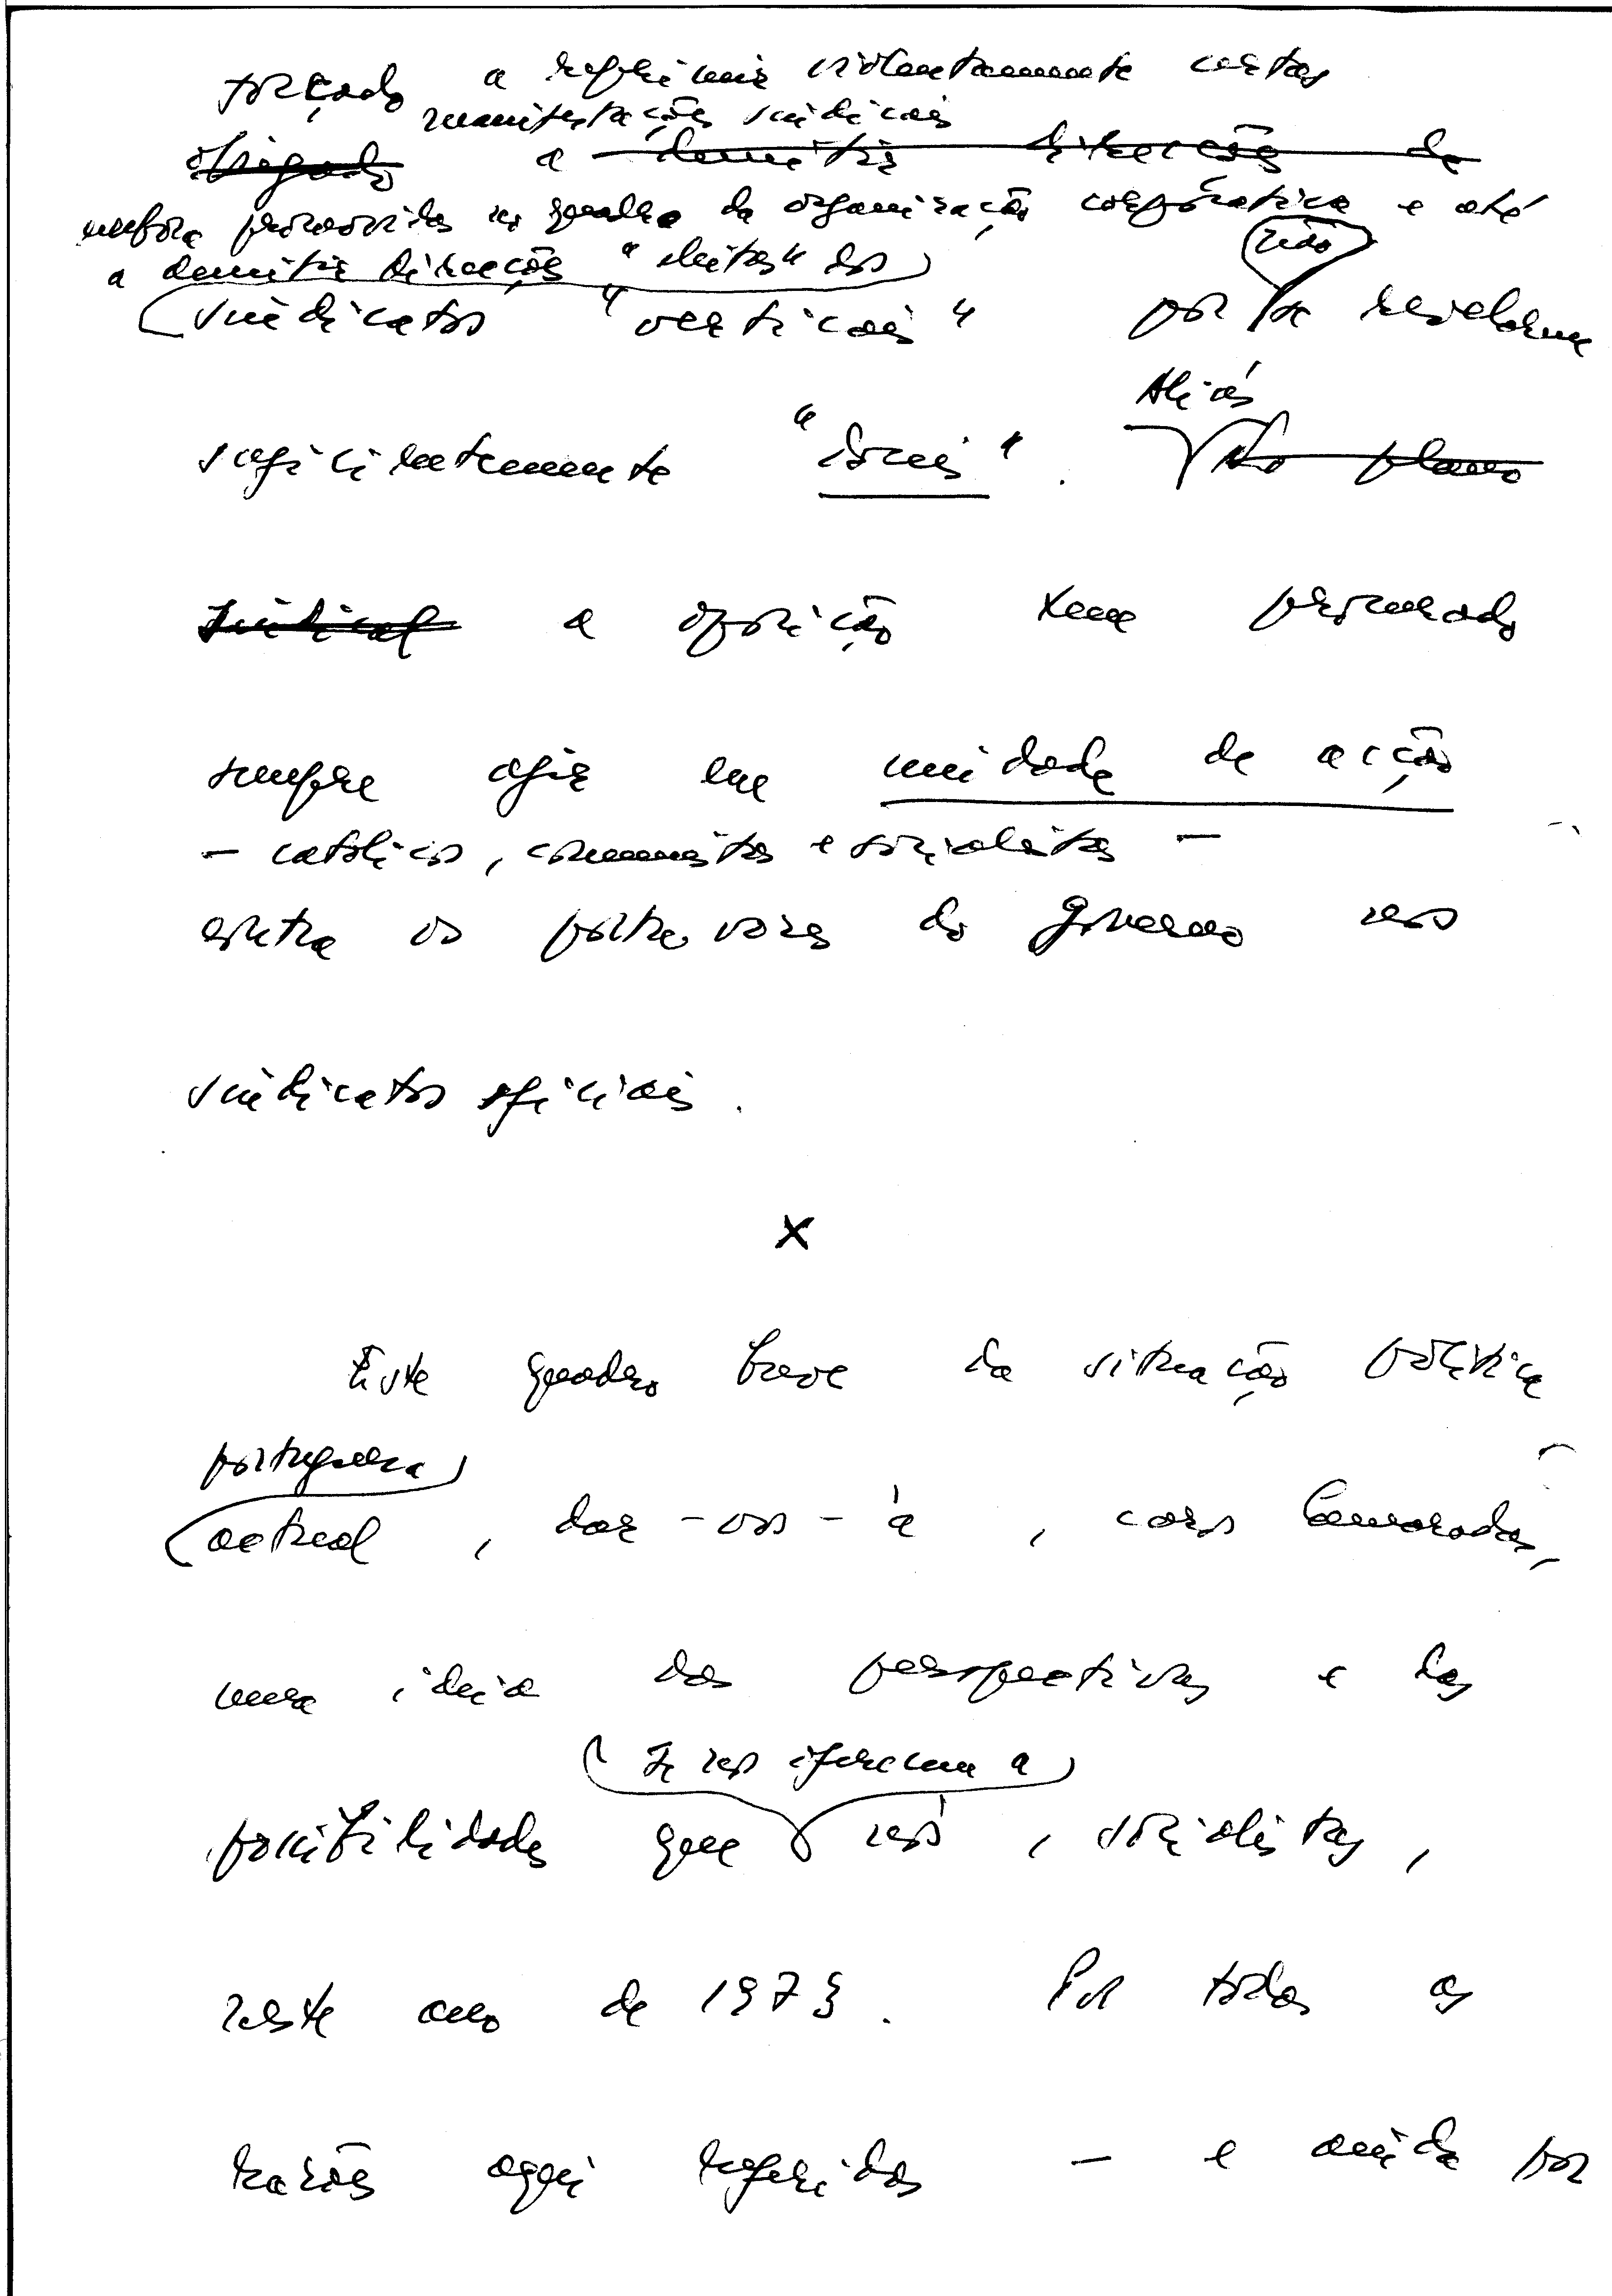 forçado a reprimir violentamente certas
manifestações sindicais
obrigado a demitir direcções de
embora promovidas no quadro da organização corporativa e até
a demitir direcções "eleitas" dos
não
sindicatos "verticais" por se revelarem
Aliás
suficientemente "dóceis". No plano
sindical a oposição tem procurado
sempre agir em unidade de acção
- católicos, comunistas e socialistas -
contra os porta-vozes do Governo nos
sindicatos oficiais.
X
Este quadro breve da situação política
portuguesa
actual, dar-vos-á, caros Camaradas,
uma ideia das perspectivas e das
se nos oferecem a
possibilidades que nós, socialistas,
neste ano de 1973. Por todas as
razões aqui referidas - e ainda por